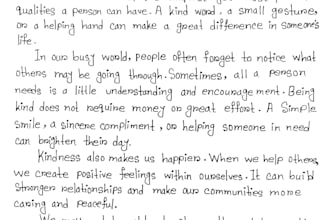 qualities a person can have. A kind word, a small gesture,
or a helping hand can make a great difference in someone's
life.
In our busy world, people often forget to notice what
others may be going through. Sometimes, all a person
needs is a little understanding and encouragement. Being
kind does not require money or great effort. A Simple
smile, a sincere compliment, or helping someone in need
can brighten their day.
Kindness also makes us happier. When we help others,
we create positive feelings within ourselves. It can build
stronger relationships and make our communities more
caring and peaceful.